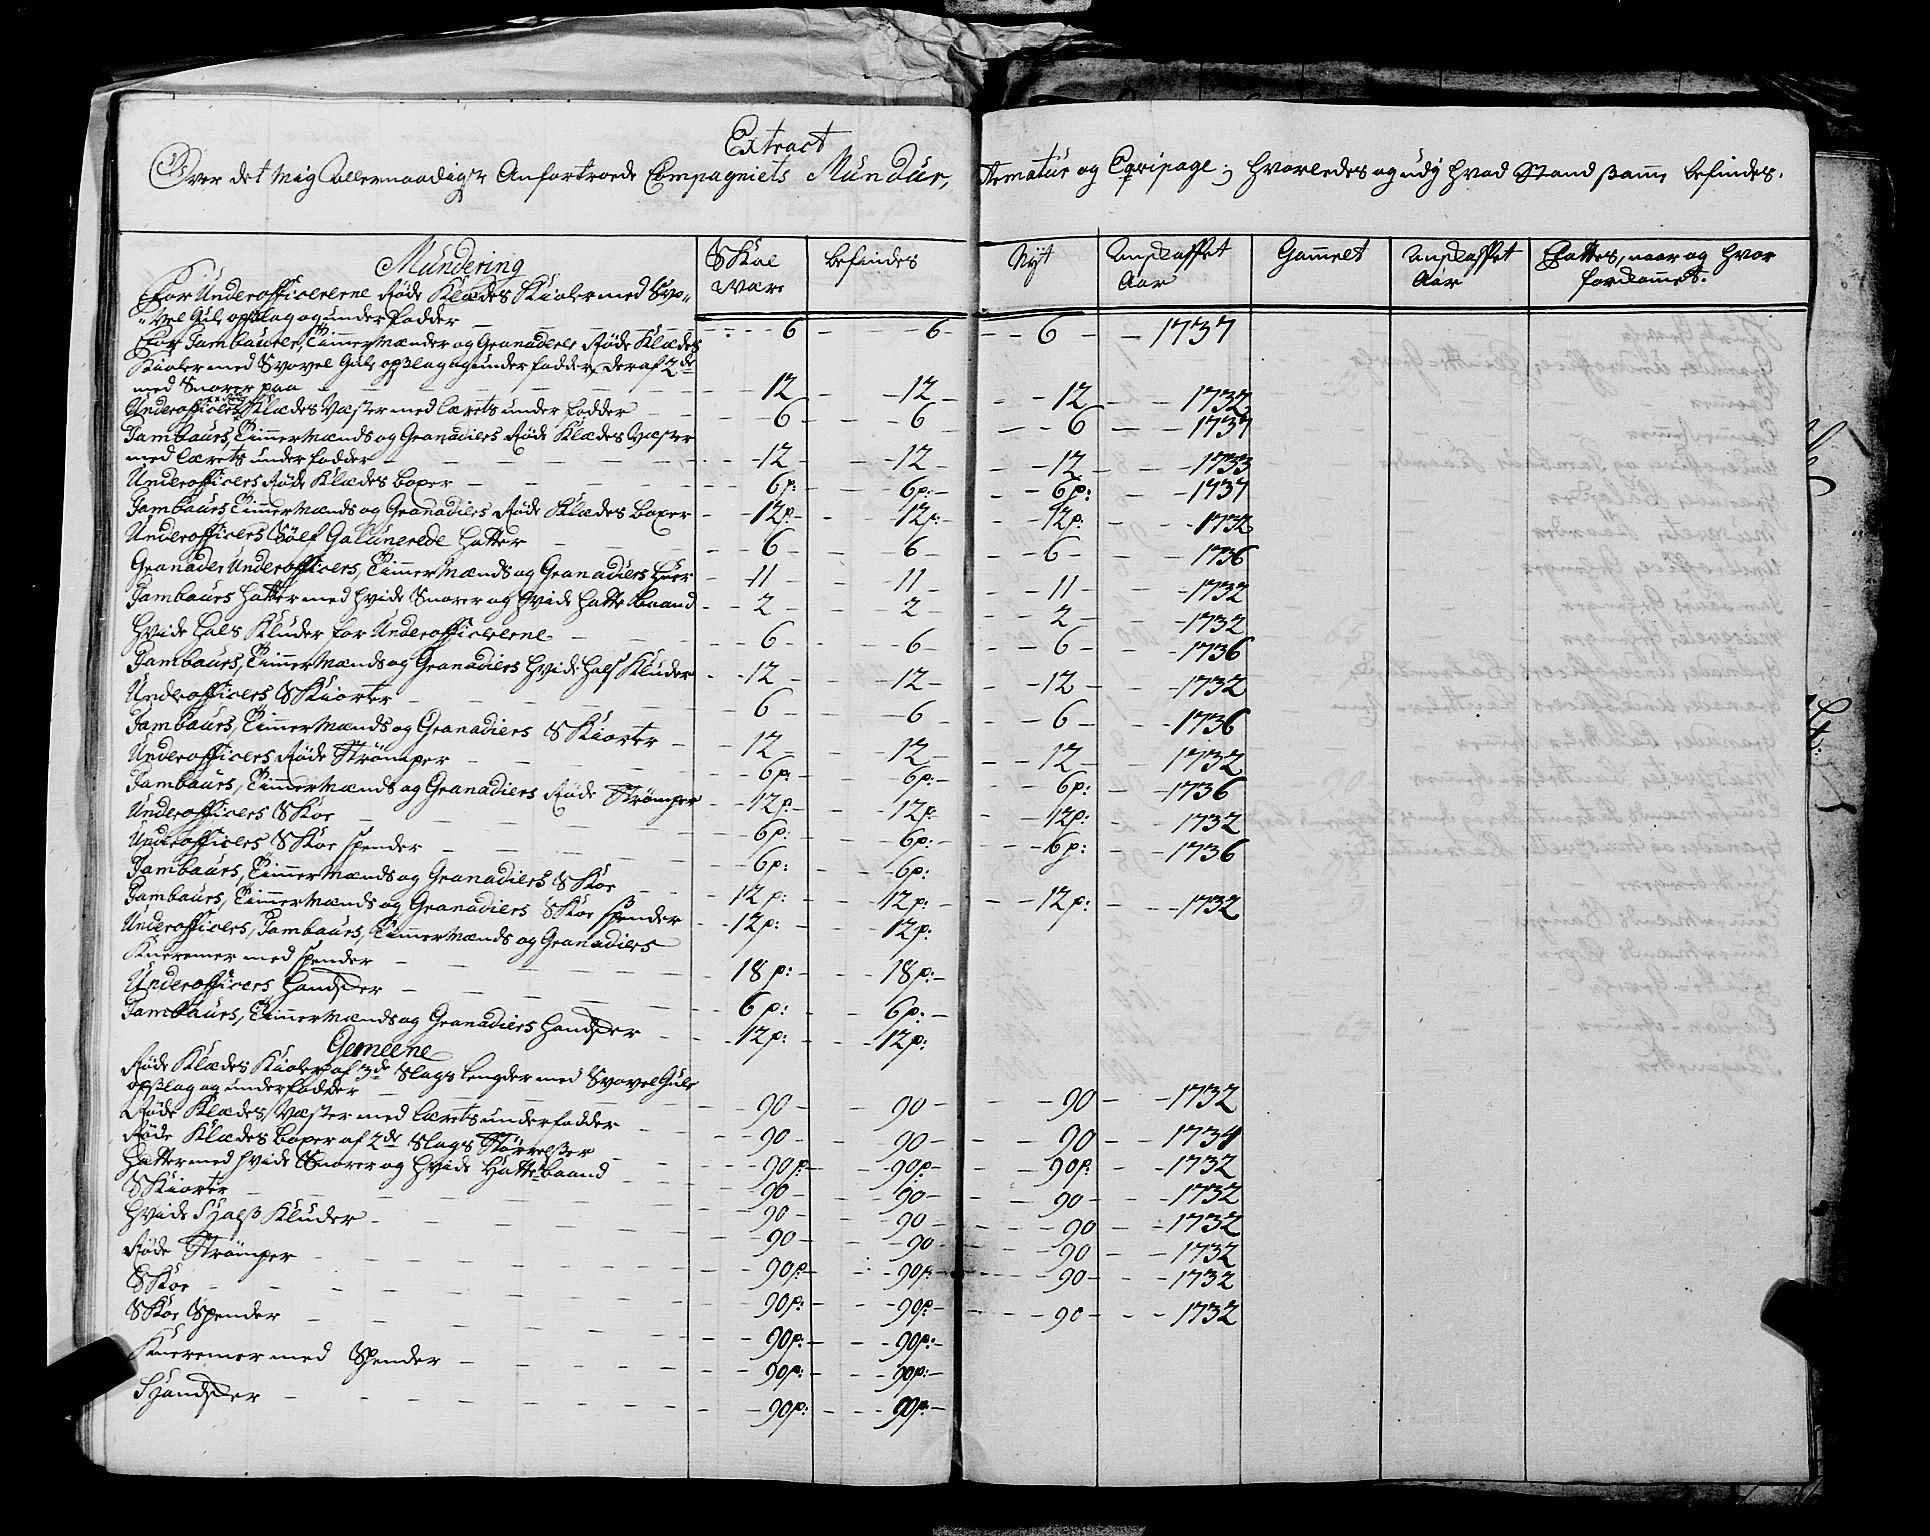 Extract
Over det mig Allernaadigst Anfortroede Compagniets Mundur, Armatur og Eqvipage; hvorledes og udj hvad Stand ßamme befindes.
Mundering | Skal være | befindes | Nyt | Anskaffet Aar | Gammelt | Anskaffet Aar | Fattes, naar og hvor forkommet.
For Underofficererne Røde Klædes Kioler med Svo-
vel Gule opslag og underfodder — 6 — 6 — 6 — 1737
For Tambourer, Timmermænder og Granaderer Røde Klædes
Kioler med Svovel Gule opslag og underfodder, deraf 2de
med Snorer paa — 12 — 12 — 12 — 1732
Underofficers Klædes Væster med Lærets underfodder — 6 — 6 — 6 — 1737
Tambaurs, Timmermænds og Granadiers Røde Klædes Væster
med Lærets underfodder — 12 — 12 — 12 — 1733
Underofficers Røde Klædes boxer — 6p: — 6p: — 6p: — 1737
Tambaurs Timmermænds og Granadiers Røde Klædes boxer — 12p: — 12p: — 12p: — 1732
Underofficers Sølf Galunerede Hatter — 6 — 6 — 6 — 1736
Granader Underofficers, Timmermænds og Granadiers Huer — 11 — 11 — 11 — 1732
Tambaurs Hatter med hvide Snorer og hvide Hatte baand — 2 — 2 — 2 — 1732
Hvide Hals Kluder for Underofficererne — 6 — 6 — 6 — 1736
Tambaurs, Timmermænds og Granadiers hvide Hals Kluder — 12 — 12 — 12 — 1732
Underofficers Skiorter — 6 — 6 — 6 — 1736
Tambaurs, Timmermænds og Granadiers Skiorter — 12 — 12 — 12 — 1732
Underofficers Røde Strømper — 6p: — 6p: — 6p: — 1736
Tambaurs, Timmermænds og Granadiers Røde Strømper — 12p: — 12p: — 12p: — 1732
Underofficers Skoe — 6p: — 6p: — 6p: — 1736
Underofficers Skoe spender — 6p: — 6p:
Tambaurs, Timmermænds og Granadiers Skoe — 12p: — 12p: — 12p: — 1732
Tambaurs, Timmermænds og Granadiers Skoe spender — 12p: — 12p:
Underofficers, Tambaurs, Timmermænds og Granadiers
Kneremer med spender — 18p: — 18p:
Underofficers Handsker — 6p: — 6p:
Tambaurs, Timmermænds og Granadiers Handsker — 12p: — 12p:
Gemeene
Røde Klædes Kioler af 3de Slags Lengder med Svovel Gule
opslag og underfodder — 90 — 90 — 90 — 1732
Røde Klædes Væster med Lærets underfodder — 90 — 90 — 90 — 1734
Røde Klædes boxer af 2de Slags Størrelßer — 90p: — 90p: — 90p: — 1732
Hatter med hvide Snorer og hvide Hatte baand — 90 — 90 — 90 — 1732
Skiorter — 90 — 90 — 90 — 1732
Hvide Halß Kluder — 90 — 90 — 90 — 1732
Røde Strømper — 90p: — 90p: — 90 — 1732
Skoe — 90p: — 90p: — 90 — 1732
Skoe Spender — 90p: — 90p:
Kneremer med Spender — 90p: — 90p:
Handsker — 90p: — 90p: